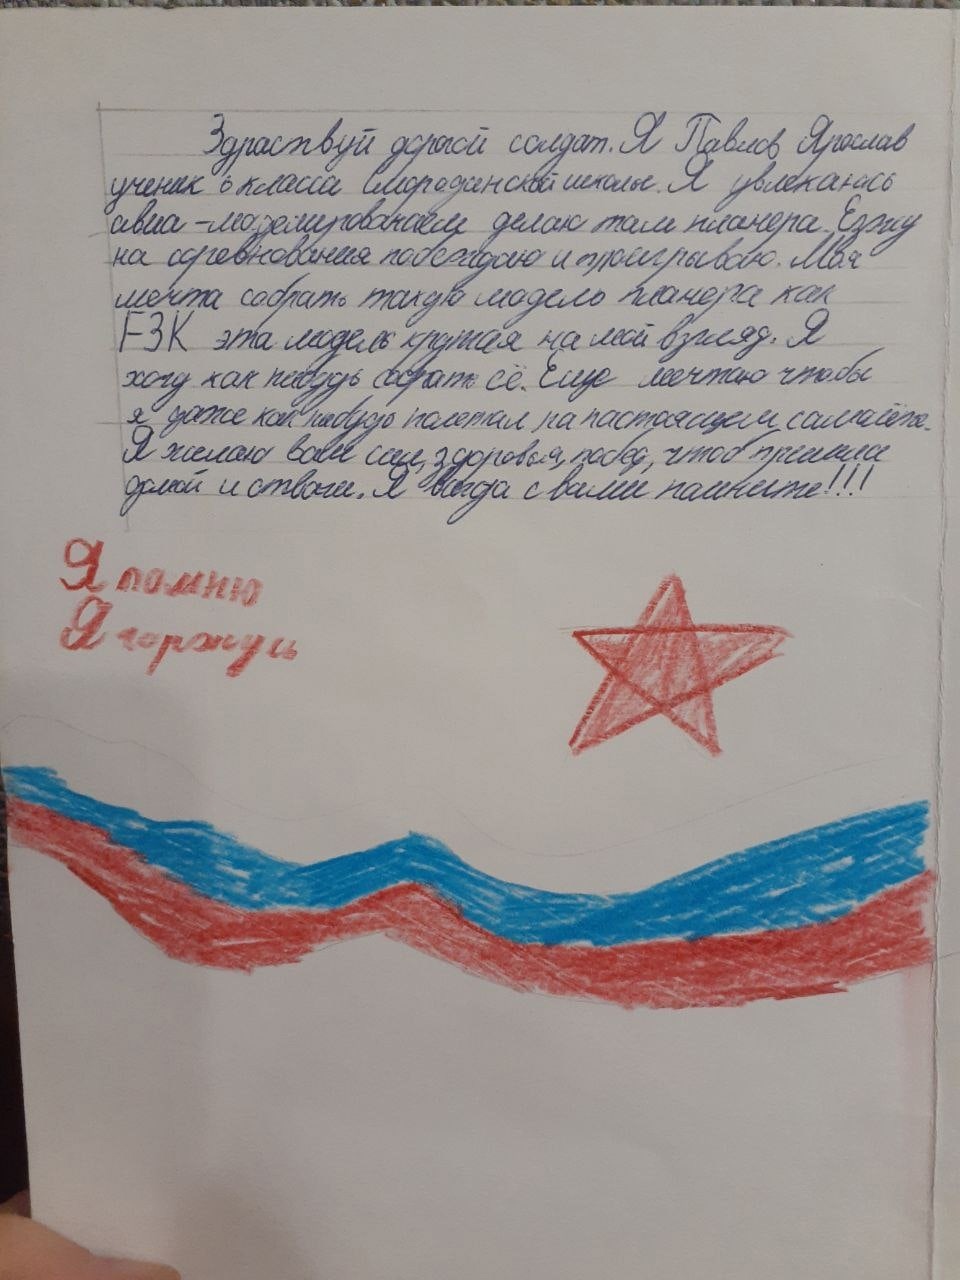 Здраствуй дорогой солдат. Я Павлов Ярослав
ученик 6 класса Смородинской школы. Я увлекаюсь
авиа-моделированием делаю там планера. Езжу
на соревнования побеждаю и проигрываю. Моя
мечта собрать такую модель планера как
F3K эта модель крутая на мой взгляд. Я
хочу как нибудь собрать её. Еще мечтаю чтобы
я даже как нибудь полетал на настоящем самолёте.
Я желаю вам сил, здоровья, побед, чтоб пришли
домой и . Я всегда с вами помните!!!
Я помню
Я горжусь